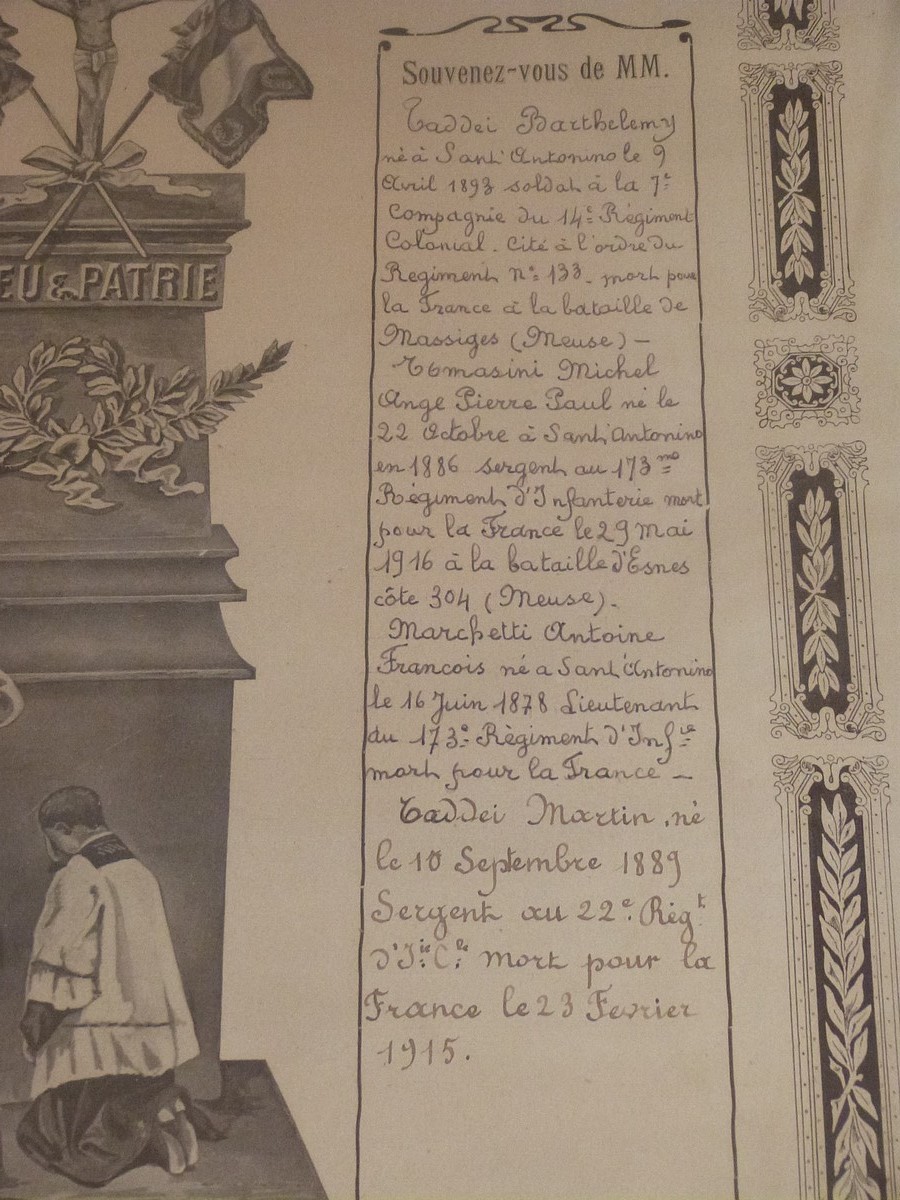 EU & PATRIE
Souvenez-vous de MM.
Taddei Barthelemy
né à Sant'Antonino le 9
Avril 1893 soldat à la 7e
Compagnie du 14e Régiment
Colonial. Cité à l'ordre du
Regiment n° 133 - mort pour
la France à la bataille de
Massiges (Meuse) -
Tomasini Michel
Ange Pierre Paul né le
22 Octobre à Sant'Antonino
en 1886 sergent au 173me
Régiment d'Infanterie mort
pour la France le 29 Mai
1916 à la bataille d'Esnes
côte 304 (Meuse).
Marchetti Antoine
Francois né a Sant'Antonino
le 16 Juin 1878 Lieutenant
du 173e Règiment d'Infie
mort pour la France -
Taddei Martin, né
le 10 Septembre 1889
Sergent au 22e Règt
d'Iie Cle mort pour la
France le 23 Fevrier
1915.